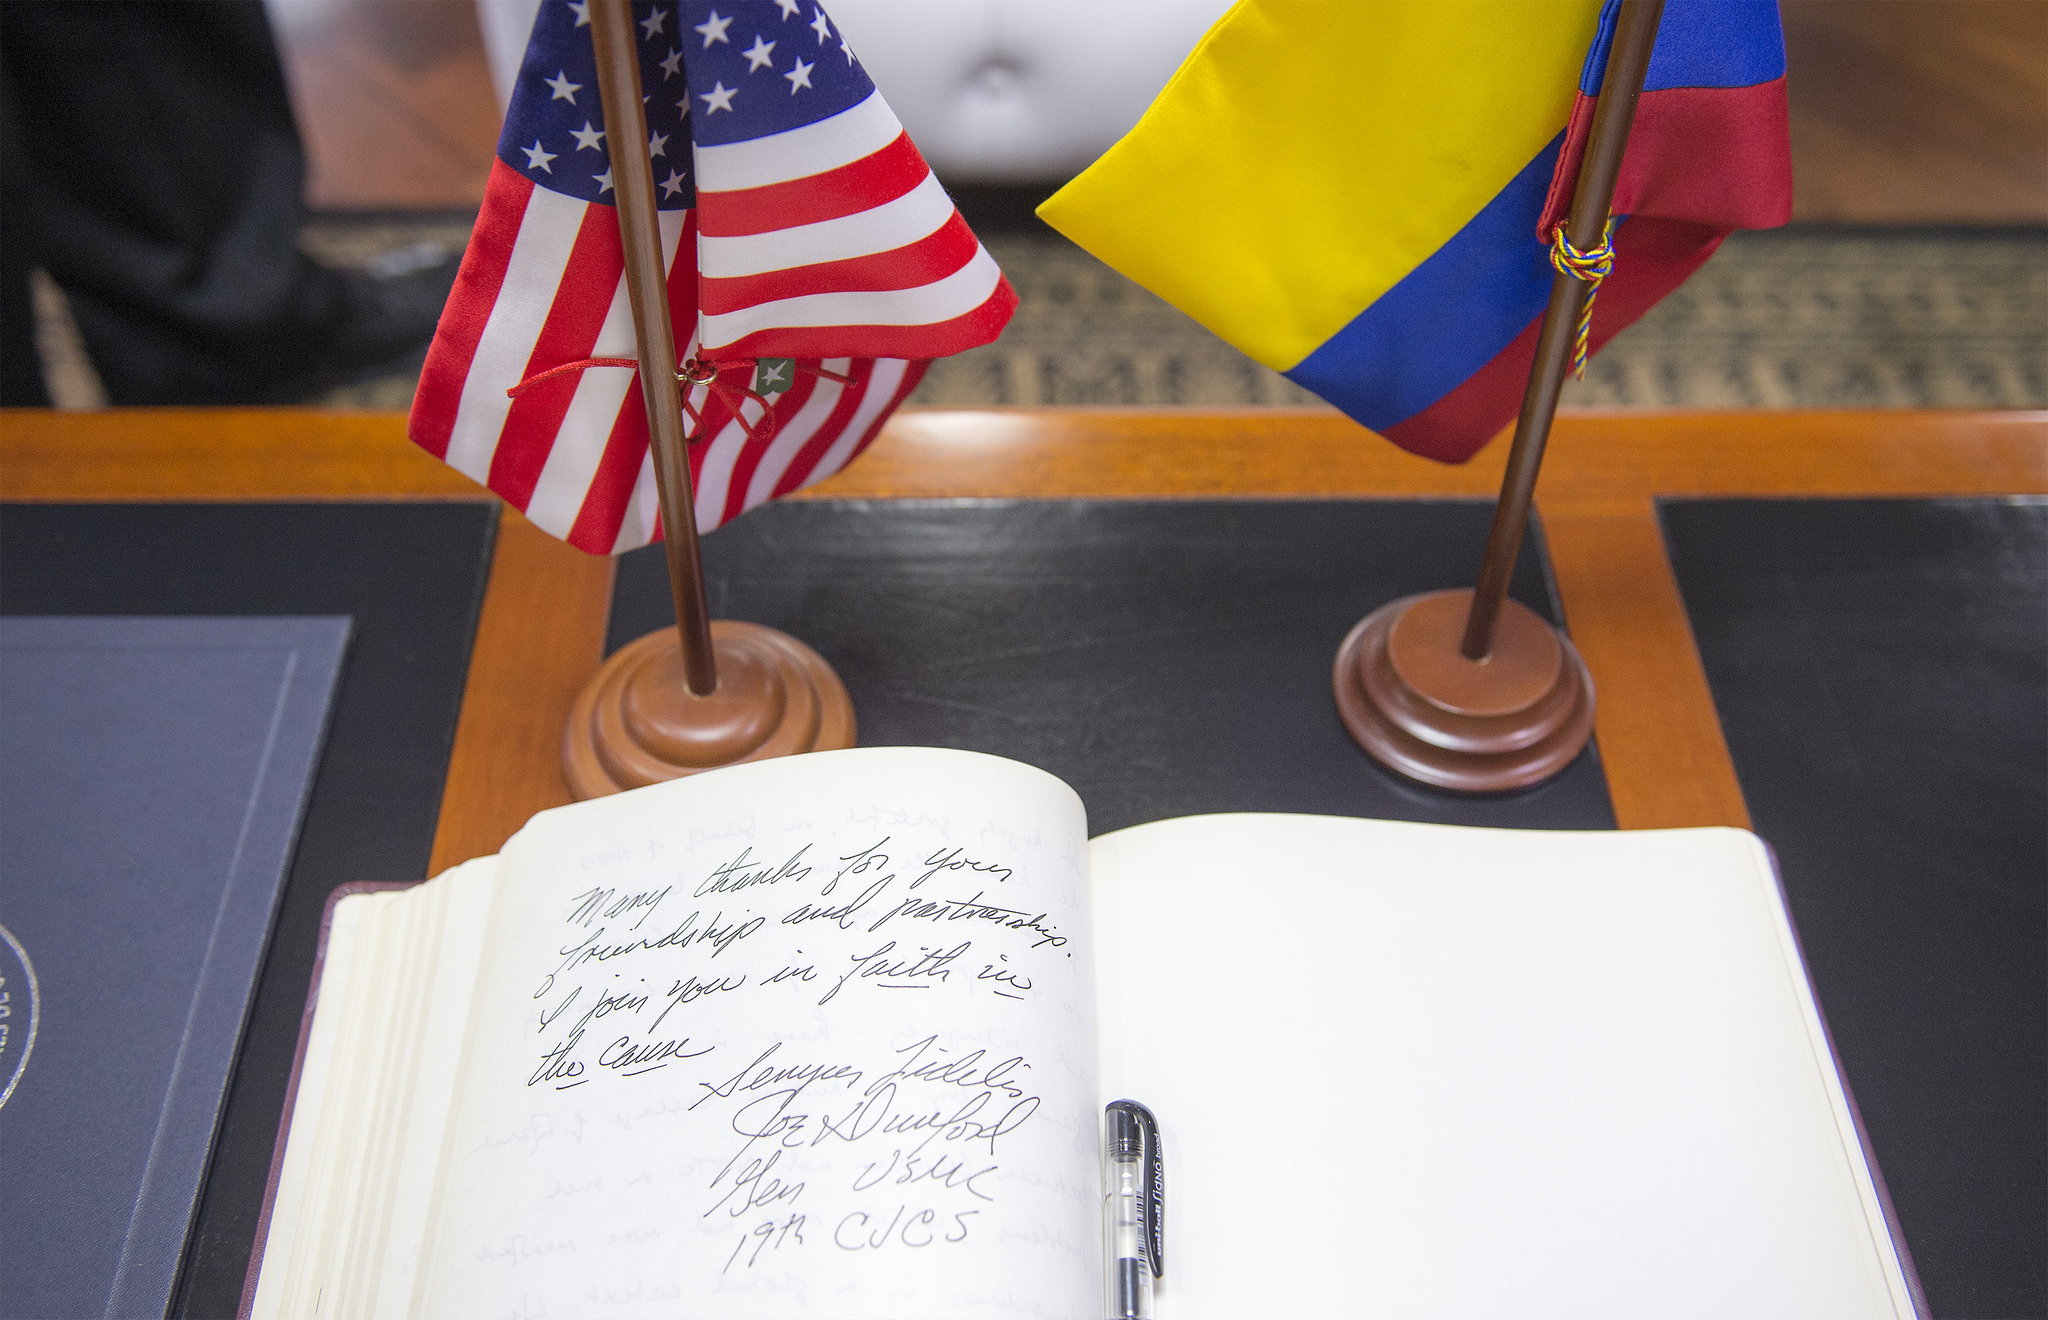 Many thanks for your
friendship and partnership.
I join you in faith in
the cause
Semper Fidelis
Joe Dunford
Gen USMC
19th CJCS
uni-ball SIGNO broad